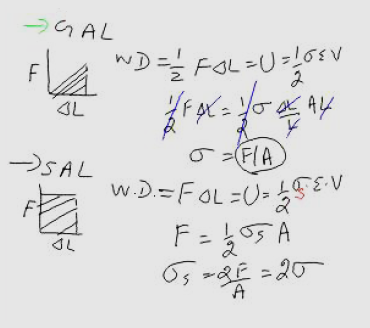 → GAL
F
ΔL
WD = 1/2 F ΔL = U = 1/2 σ ε V
1/2 F ΔL = 1/2 σ ΔL/L A L
σ = F/A
→ SAL
F
ΔL
W.D. = F ΔL = U = 1/2 σs ε. V
F = 1/2 σs A
σs = 2F/A = 2σ